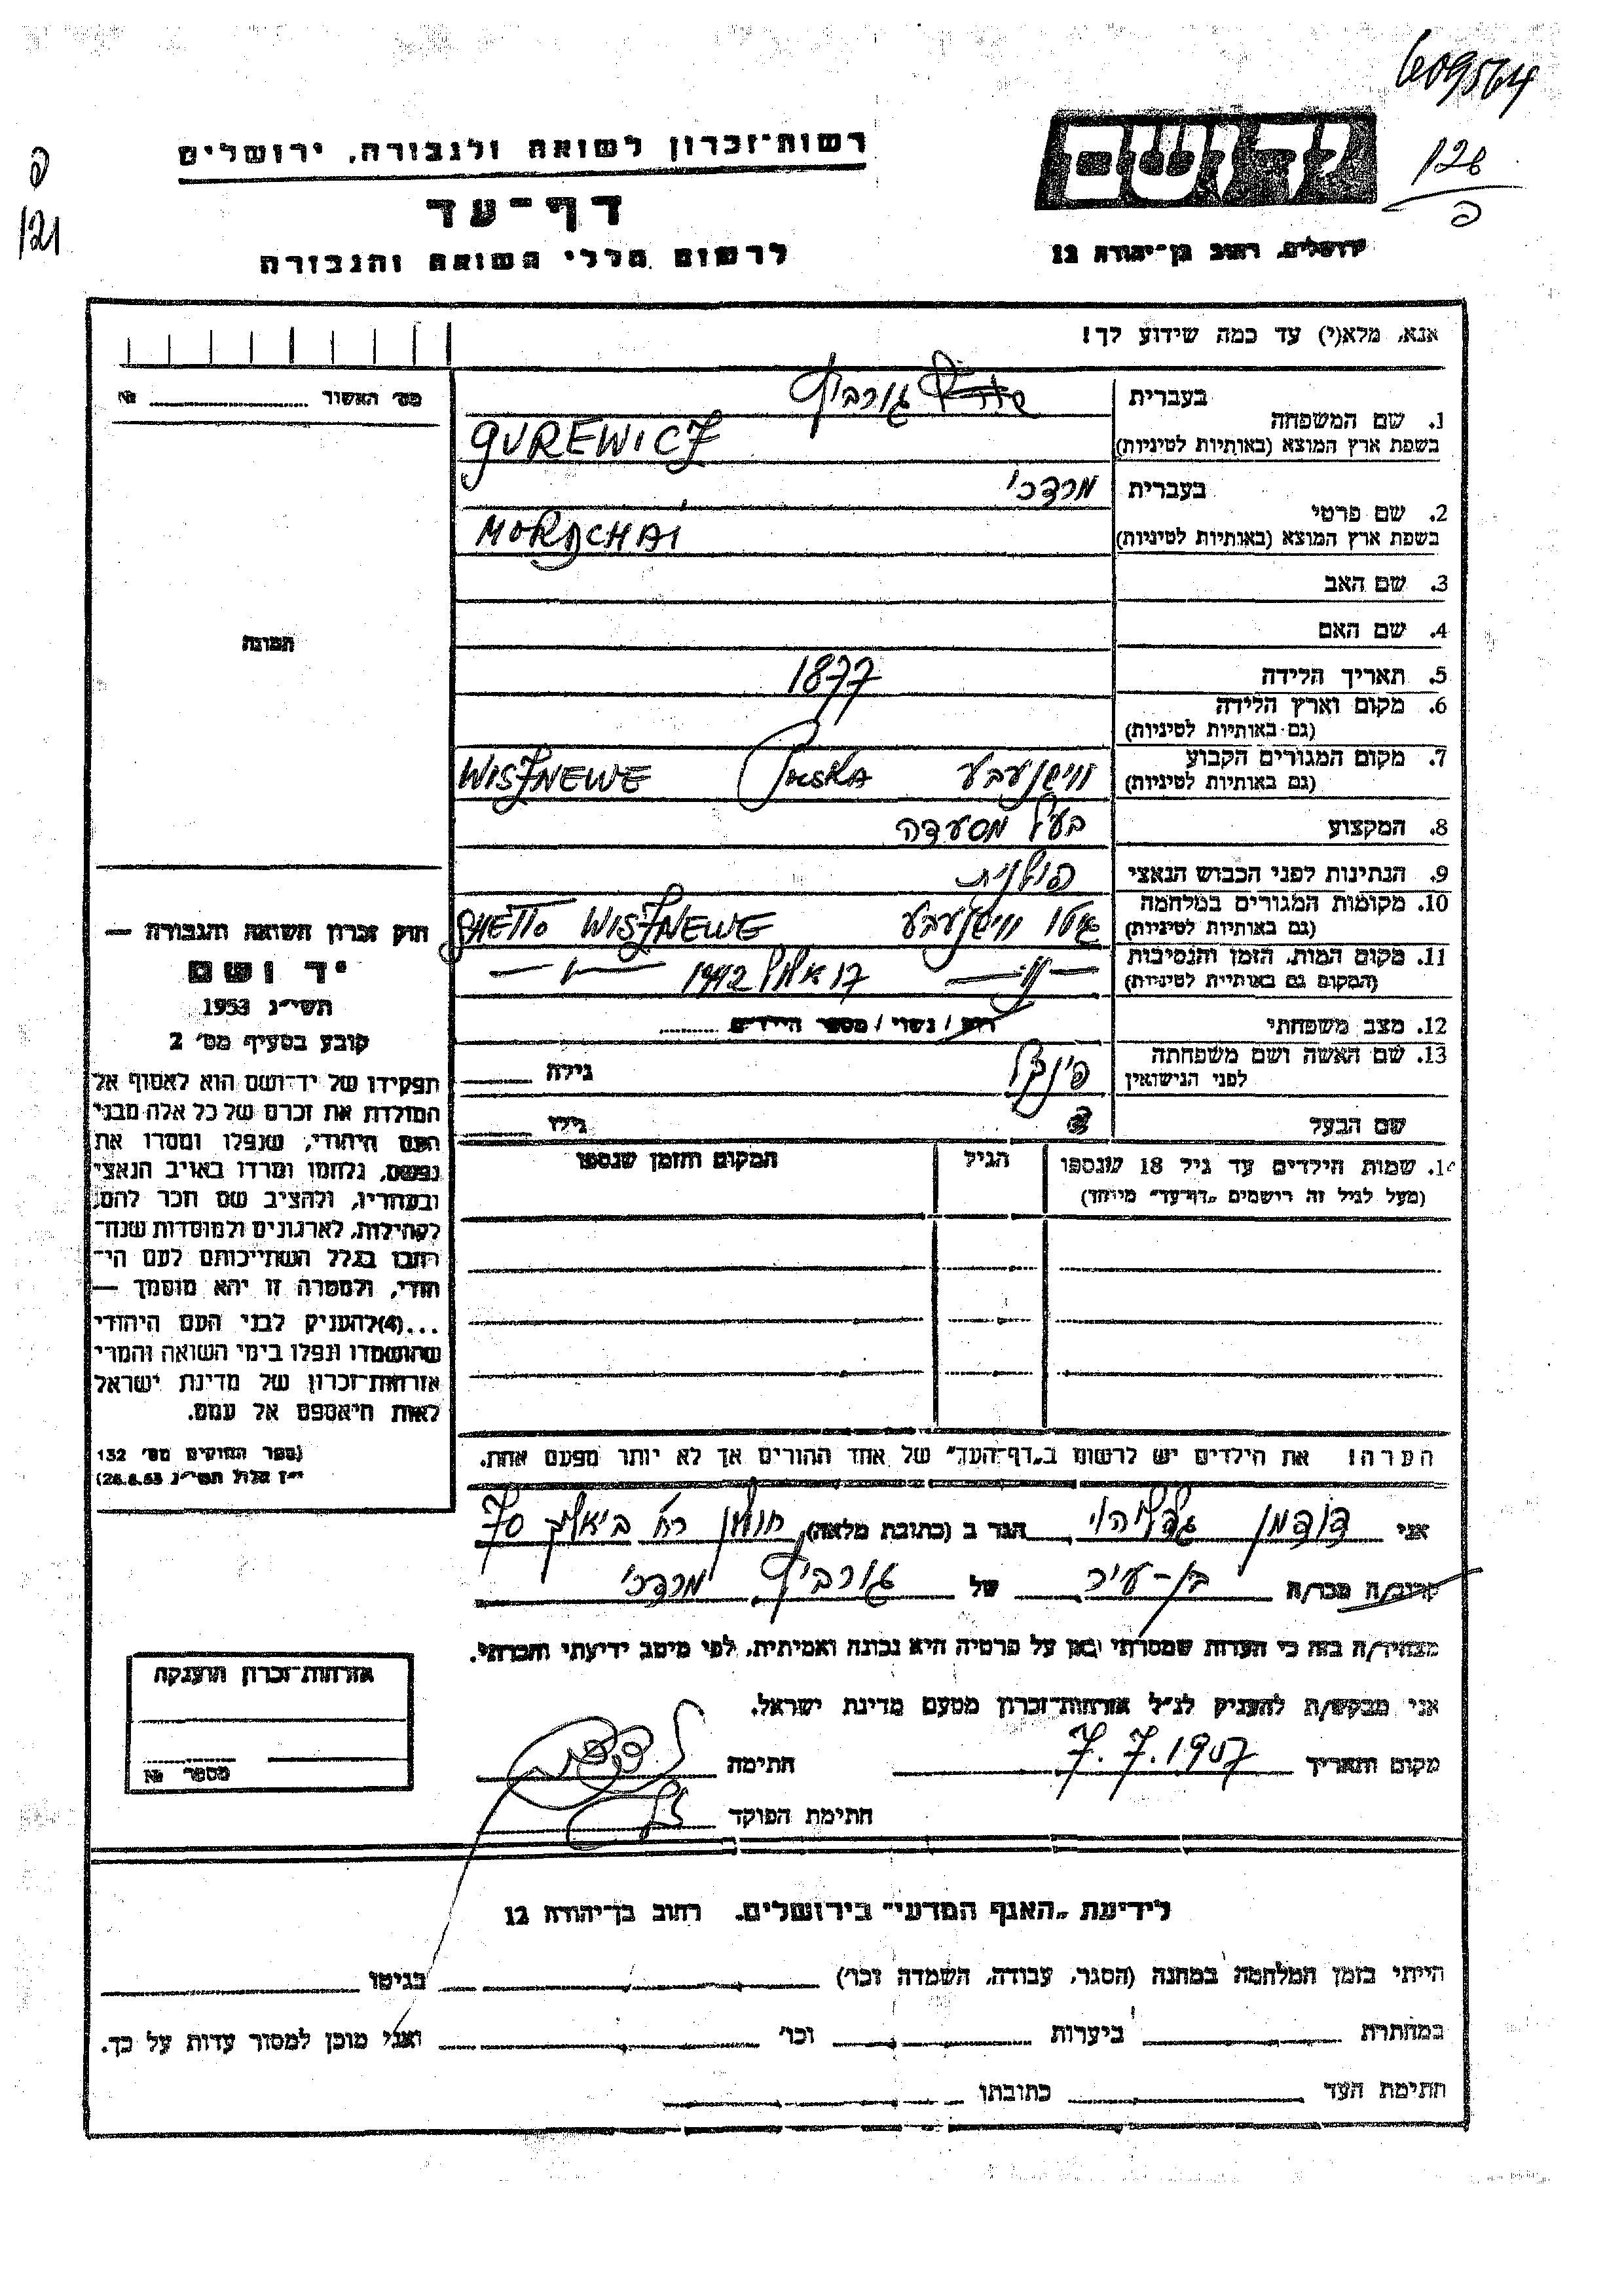 609564
128
פ
פ
121
יד ושם
ירושלים, רחוב בן־יהודה 12
רשות־זכרון לשואה ולגבורה, ירושלים
דף־עד
לרשום חללי השואה והגבורה
אנא, מלא(י) עד כמה שידוע לך!
מס׳ האשור № 
תמונה
1. שם המשפחה בעברית גורביץ
בשפת ארץ המוצא (באותיות לטיניות) GUREWICZ
2. שם פרטי בעברית מרדכי
בשפת ארץ המוצא (באותיות לטיניות) MORDCHAI
3. שם האב
4. שם האם
5. תאריך הלידה 1877
6. מקום וארץ הלידה
(גם באותיות לטיניות)
7. מקום המגורים הקבוע
(גם באותיות לטיניות) ווישנעבע Polska WISZNEWE
8. המקצוע בעל מסעדה
9. הנתינות לפני הכבוש הנאצי פולנית
10. מקומות המגורים במלחמה
(גם באותיות לטיניות) גטו ווישנעבע GHETTO WISZNEWE
11. מקום המות, הזמן והנסיבות
(המקום גם באותיות לטיניות) — " — יז אלול 1942 — " —
12. מצב משפחתי רווק / נשוי / מספר הילדים
13. שם האשה ושם משפחתה
לפני הנישואין גילה
שם הבעל גילו
שמות הילדים עד גיל 18 שנספו הגיל המקום והזמן שנספו
(מעל לגיל זה רישמים „דף־עד״ מיוחד)
הערה! את הילדים יש לרשום ב„דף־העד״ של אחד ההורים אך לא יותר מפעם אחת.
חוק זכרון השואה והגבורה —
יד ושם
תשי״ג 1953
קובע בסעיף מס׳ 2
תפקידו של יד־ושם הוא לאסוף אל
המולדת את זכרם של כל אלה מבני
העם היהודי, שנפלו ומסרו את
נפשם, נלחמו ומרדו באויב הנאצי
ובעוזריו, ולהציב שם וזכר להם,
לקהילות, לארגונים ולמוסדות שנח־
רבו בגלל השתייכותם לעם הי־
הודי, ולמטרה זו יהא מוסמך —
...(4)להעניק לבני העם היהודי
שהושמדו ונפלו בימי השואה והמרי
אזרחות־זכרון של מדינת ישראל
לאות היאספם אל עמם.
(ספר החוקים מס׳ 132
י״ז אלול תשי״ג 28.8.53)
אני דודמן גדליהו הגר ב (כתובת מלאה) חולון רח׳ ביאליק 70
קרוב/ה מכר/ה בן-עיר של גורביץ מרדכי
מצהיר/ה בזה כי העדות שמסרתי כאן על פרטיה היא נכונה ואמיתית, לפי מיטב ידיעתי והכרתי.
אני מבקש/ת להעניק לנ״ל אזרחות־זכרון מטעם מדינת ישראל.
מקום ותאריך 7.7.1957 חתימה
חתימת הפוקד
אזרחות־זכרון הוענקה
מספר №
לידיעת „האגף המדעי״ בירושלים, רחוב בן־יהודה 12
הייתי בזמן המלחמה במחנה (הסגר, עבודה, השמדה וכו׳) בגיטו
במחתרת ביערות וכו׳ ואני מוכן למסור עדות על כך.
חתימת העד כתובתו